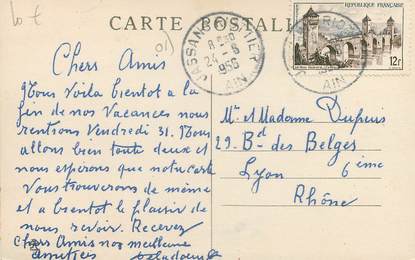 10 €
CARTE POSTALE
RÉPUBLIQUE FRANÇAISE
12F
24-8
1956
AIN
AIN
Chers Amis
Nous Voila bientot a la
fin de nos Vacances nous
rentrons Vendredi 31. Nous
allons bien toute deux et
nous espérons que notre carte
Vous trouverons de même
et a bientot le plaisir de
nous revoir. Recevez
Chers Amis nos meilleure
amities
Mr et Madame Dupuis
29 - Bd des Belges
Lyon 6ème
Rhône